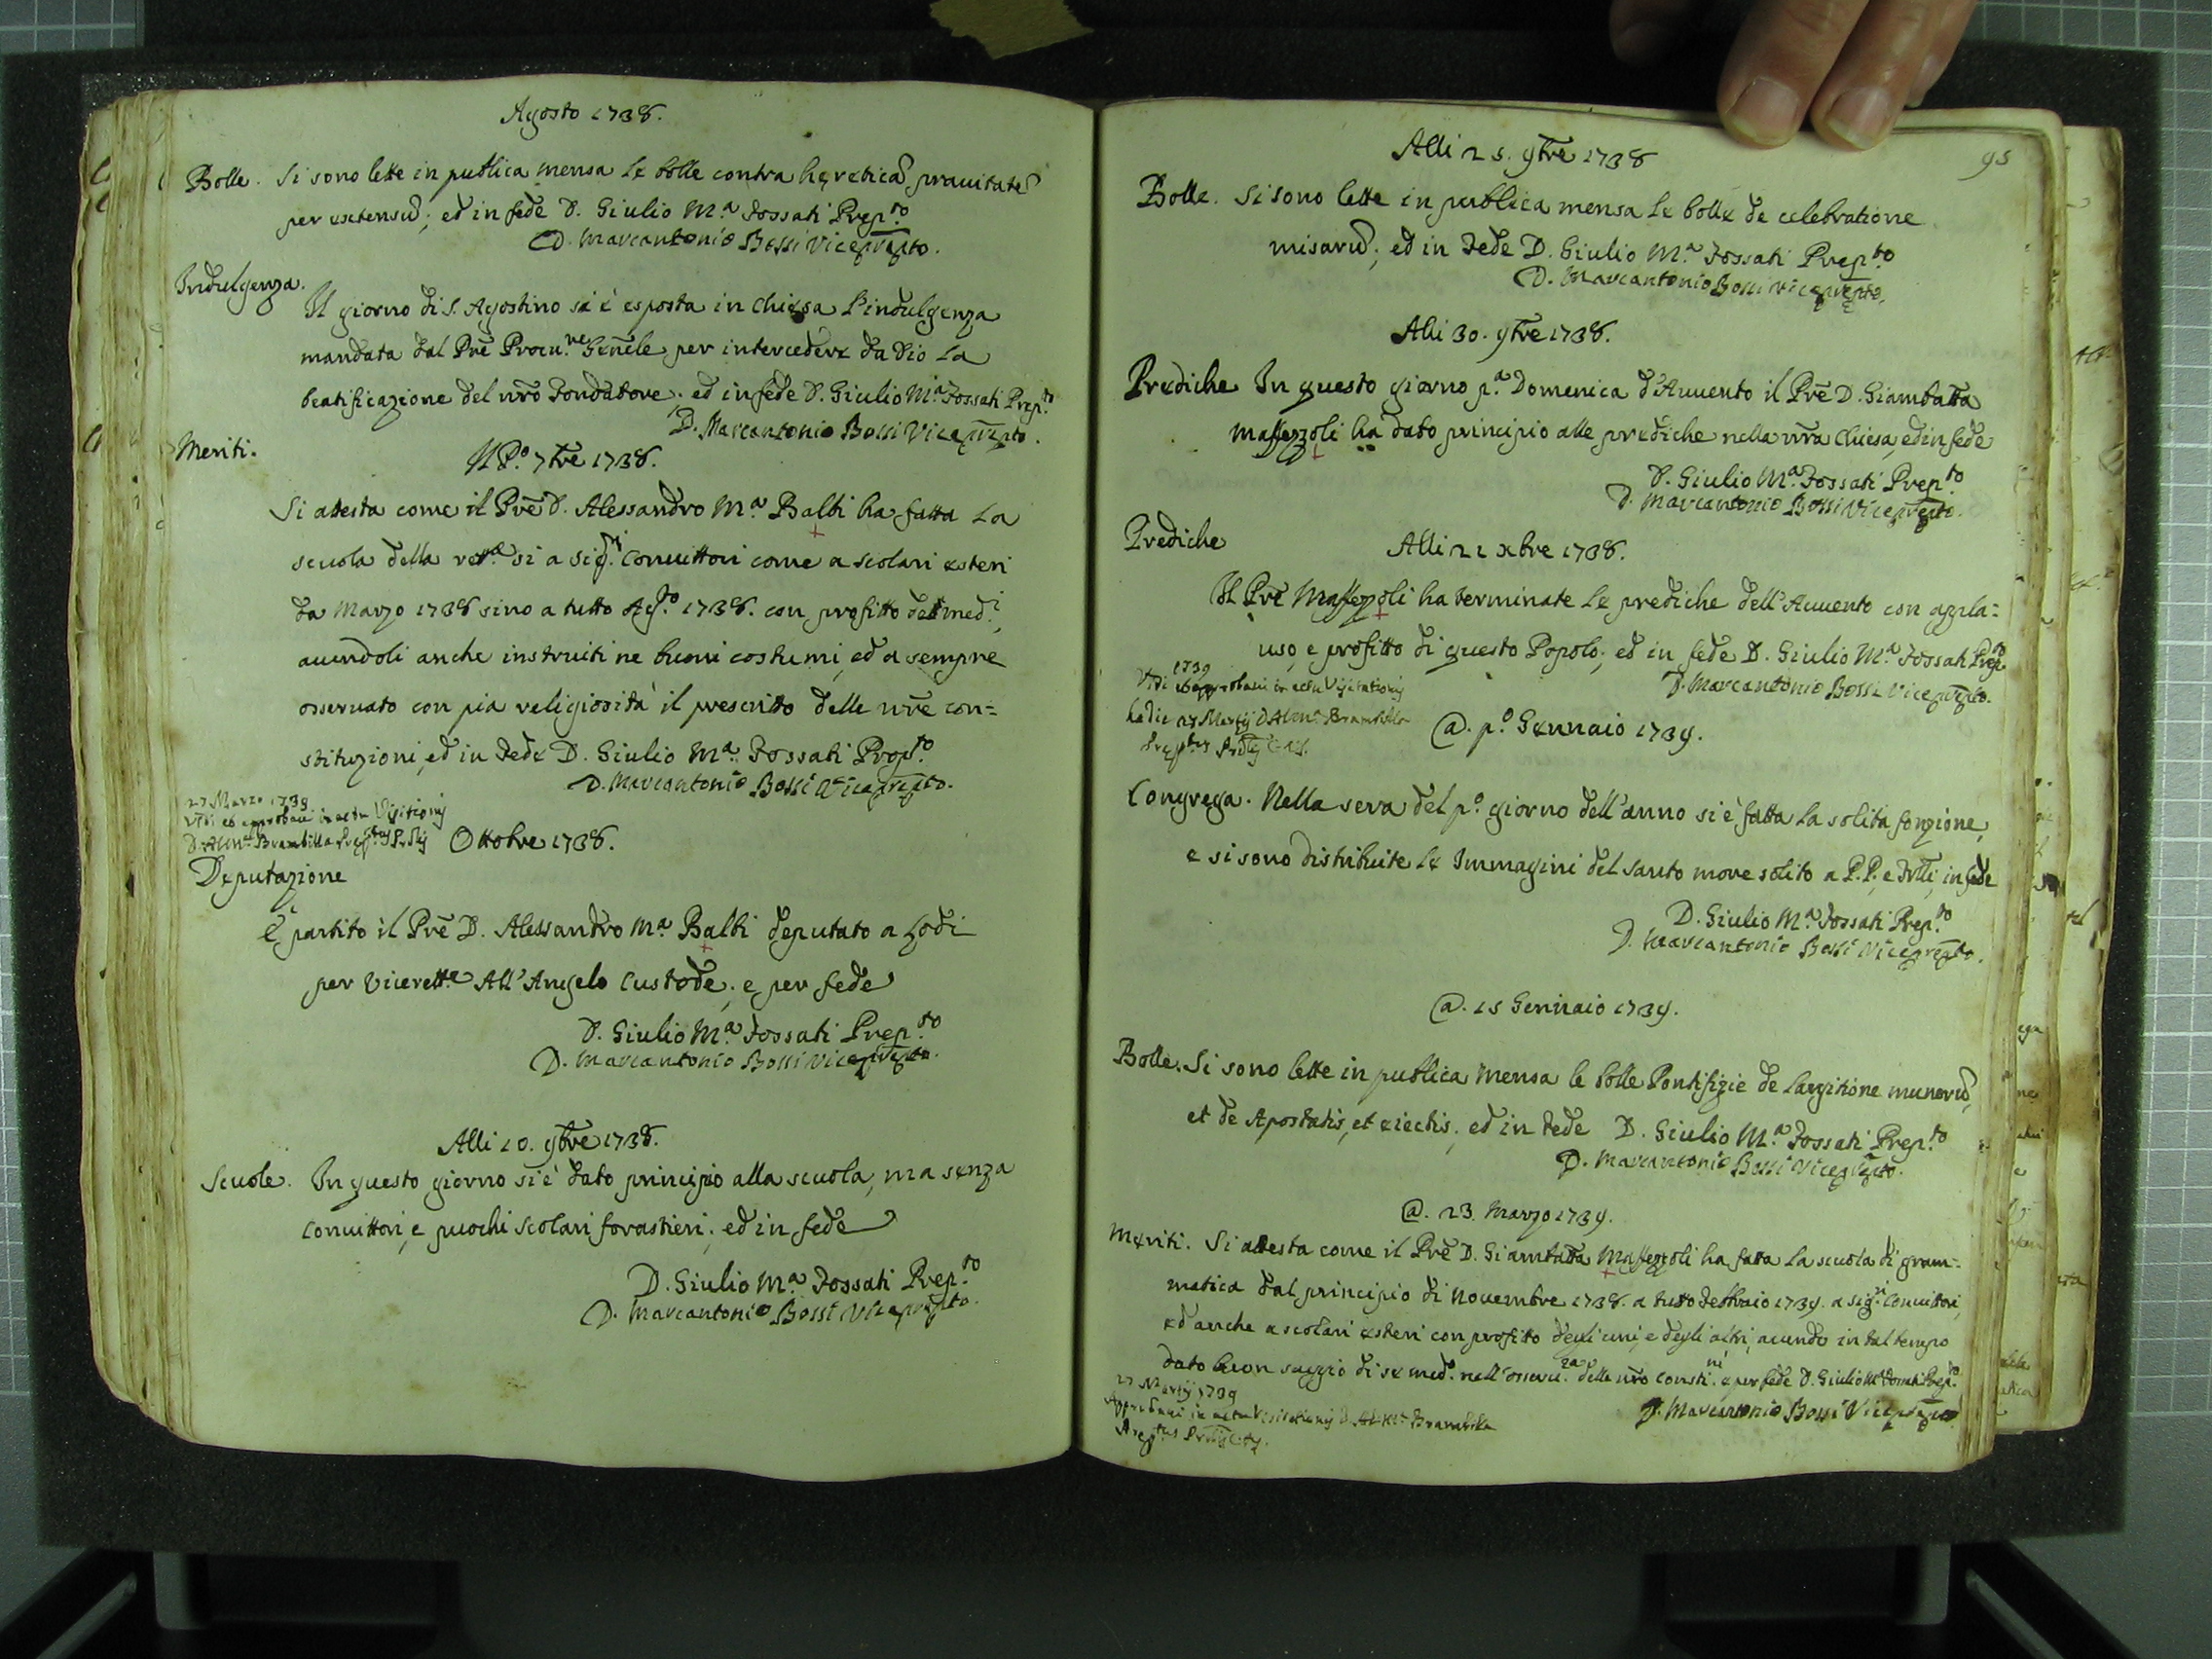 Agosto 1738.
Bolle. Si sono lette in publica mensa le bolle contra hęreticã prauitatẽ
per extensũ; ed in fede D. Giulio M.ª Fossati Prep.to
D. Marcantonio Bossi Viceprepto.
Indulgenza.
Il giorno di S. Agostino si è esposta in Chiesa l'indulgenza
mandata dal Prẽ Procu.re Genẽle per intercedere da Dio la
beatificazione del nrõ Fondatore. ed in fede D. Giulio M.ª Fossati Prep.to
D. Marcantonio Bossi Viceprepto.
Meriti.
Il P.º 7bre 1738.
Si attesta come il Prẽ D. Alessandro M.ª Balbi ha fatta la
scuola della rett.ca si a Sig.ri Conuittori come a scolari esteri
da Marzo 1738 sino a tutto Ag.to 1738. con profitto de med.i,
auendoli anche instruiti ne buoni costumi, ed a sempre
osseruato con pia religiosità il prescritto delle nrẽ con=
stituzioni, ed in Fede D. Giulio M.ª Fossati Prep.to
D. Marcantonio Bossi Viceprepto.
27 Marzo 1739
Vidi et approbaui in actu Visitionis
D. Al M.ª Brambilla Prep.tus Prolis
Ottobre 1738.
Deputazione
È partito il Prẽ D. Alessandro M.ª Balbi deputato a Lodi
per Vicerett.e All'Angelo Custode; e per fede
D. Giulio M.ª Fossati Prep.to
D. Marcantonio Bossi Viceprepto.
Alli 10. 9bre 1738.
Scuole. In questo giorno si è dato principio alla scuola, ma senza
conuittori, e puochi scolari forastieri; ed in fede
D. Giulio M.ª Fossati Prep.to
D. Marcantonio Bossi Viceprepto.
95
Alli 25. 9bre 1738
Bolle. Si sono lette in publica mensa le bolle de celebratione
misarũ; ed in Fede D. Giulio M.ª Fossati Prep.to
D. Marcantonio Bossi Viceprepto.
Alli 30. 9bre 1738.
Prediche In questo giorno p.ª Domenica d'Auuento il Prẽ D. Giambatta
Maffezzoli ha dato principio alle prediche nella nrã Chiesa, ed in fede
D. Giulio M.ª Fossati Prep.to
D. Marcantonio Bossi Viceprepto.
Prediche
Alli 21 xbre 1738.
Il Prẽ Maffezzoli ha terminate le prediche dell'Auuento con appla=
uso, e profitto di questo Popolo; ed in fede D. Giulio M.ª Fossati Prep.to
D. Marcantonio Bossi Viceprepto.
1739
Vidi et approbaui in actu Visitationis
hac die 27 Martij D. Al M.ª Brambilla
Prep.tus Prolis
@. p.º Gennaio 1739.
Congrega. Nella sera del p.º giorno dell'anno si è fatta la solita fonzione,
e si sono distribuite le Immagini del santo more solito a P.P. e Frlli, in fede
D. Giulio M.ª Fossati Prep.to
D. Marcantonio Bossi Viceprepto.
@. 15 Gennaio 1739.
Bolle. Si sono lette in publica mensa le bolle Pontifizie de largitione munerũ,
et de Apostatis, et eiectis; ed in Fede D. Giulio M.ª Fossati Prep.to
D. Marcantonio Bossi Viceprepto.
@. 23. Marzo 1739.
Meriti. Si attesta come il Prẽ D. Giambatta Maffezzoli ha fatta la scuola di gram=
matica dal principio di Nouembre 1738. a tutto Febbraio 1739. a sig.ri Conuittori,
ed anche a scolari esteri con profitto degli uni, e degli altri, auendo in tal tempo
dato buon saggio di se med.º nell'osseru.za delle nrẽ consti.ni e per fede D. Giulio M.ª Fossati Prep.to
D. Marcantonio Bossi Viceprepto
27 Martij 1739
Approbaui in actu Visitationis D. Al M.ª Brambilla
Prep.tus Prolis